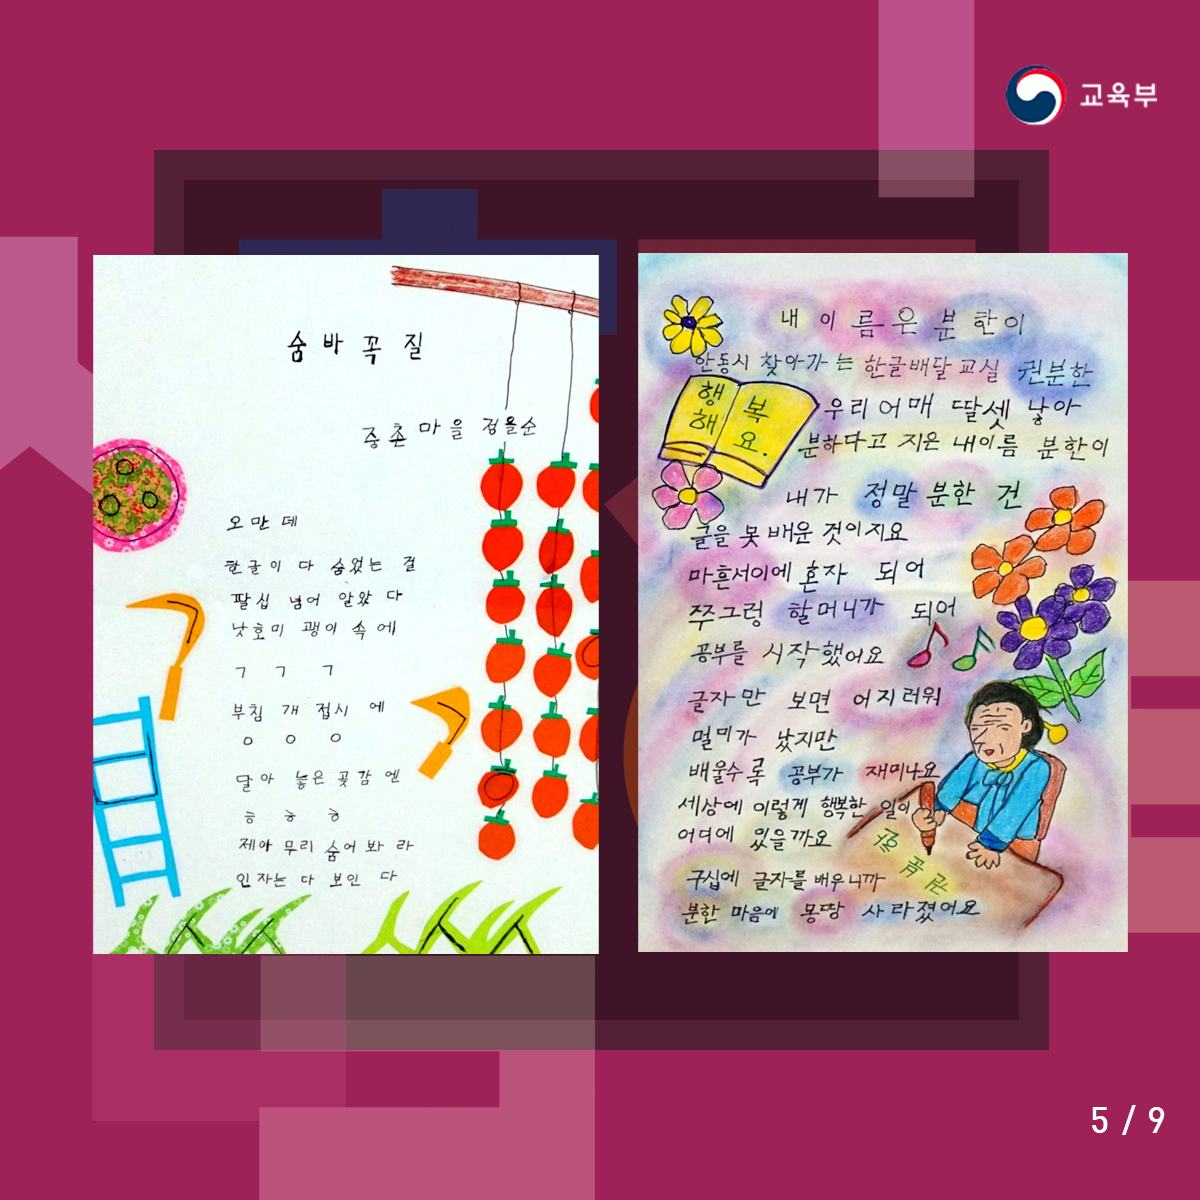 교육부
숨바꼭질
중촌마을 정을순
오만데
한글이 다 숨었는 걸
팔십 넘어 알았다
낫 호미 괭이 속에
ㄱ ㄱ ㄱ
부침개 접시에
ㅇ ㅇ ㅇ
달아 놓은 곶감엔
ㅎ ㅎ ㅎ
제아무리 숨어 봐라
인자는 다 보인다
내 이름은 분한이
안동시 찾아가는 한글배달교실 권분한
행복
해요.
우리 어매 딸셋 낳아
분하다고 지은 내이름 분한이
내가 정말 분한 건
글을 못 배운 것이지요
마흔서이에 혼자 되어
쭈그렁 할머니가 되어
공부를 시작했어요
글자만 보면 어지러워
멀미가 났지만
배울수록 공부가 재미나요
세상에 이렇게 행복한 일이
어디에 있을까요
구십에 글자를 배우니까
분한 마음이 몽땅 사라졌어요
5 / 9